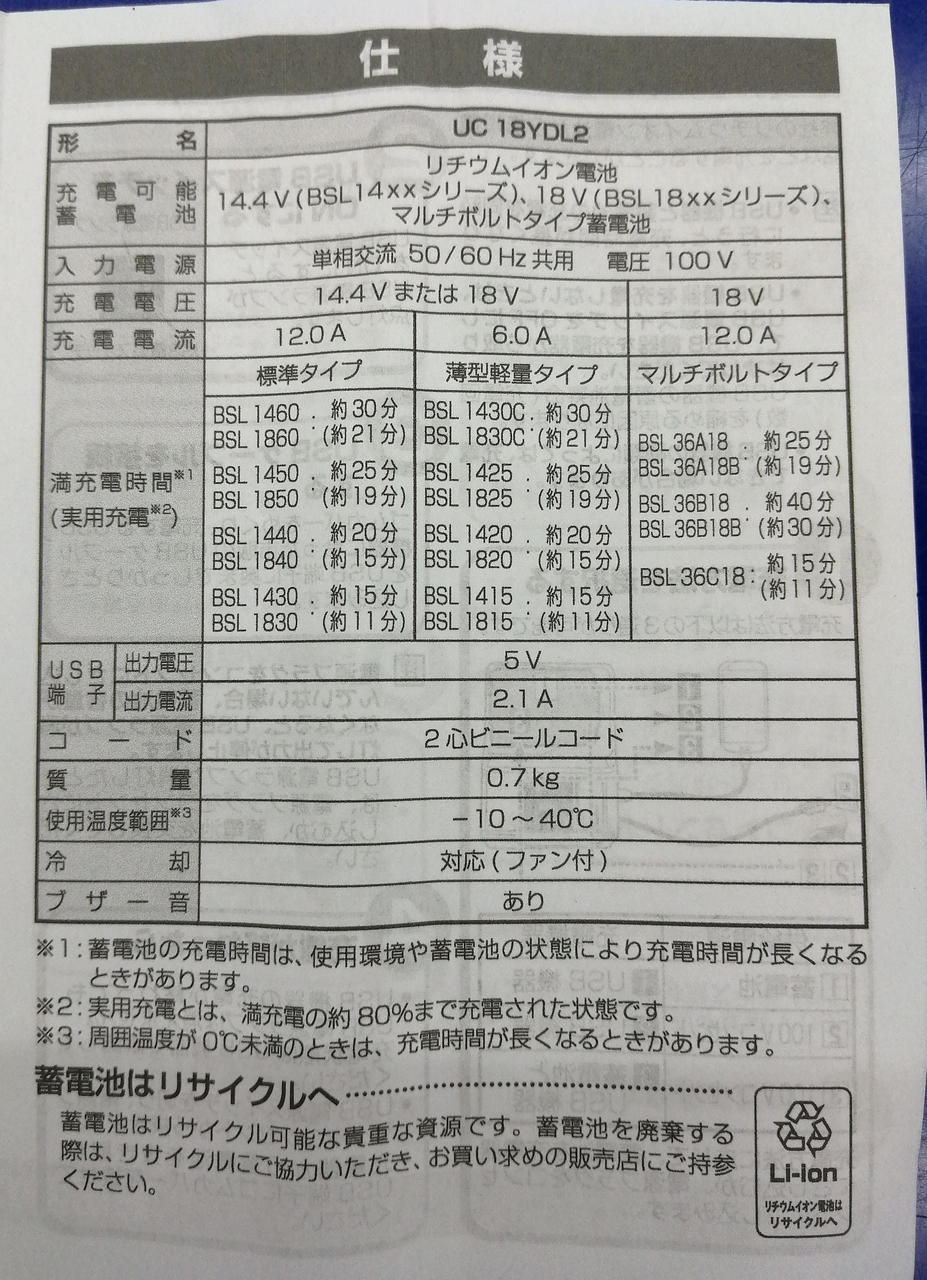 仕様
形名 UC 18YDL2
充電可能蓄電池 リチウムイオン電池
14.4V(BSL14xxシリーズ)、18V(BSL18xxシリーズ)、
マルチボルトタイプ蓄電池
入力電源 単相交流 50/60Hz共用 電圧 100V
充電電圧 14.4Vまたは18V 18V
充電電流 12.0A 6.0A 12.0A
満充電時間※1
(実用充電※2)
標準タイプ
BSL1460 : 約30分
BSL1860 (約21分)
BSL1450 : 約25分
BSL1850 (約19分)
BSL1440 : 約20分
BSL1840 (約15分)
BSL1430 : 約15分
BSL1830 (約11分)
薄型軽量タイプ
BSL1430C : 約30分
BSL1830C (約21分)
BSL1425 : 約25分
BSL1825 (約19分)
BSL1420 : 約20分
BSL1820 (約15分)
BSL1415 : 約15分
BSL1815 (約11分)
マルチボルトタイプ
BSL36A18 : 約25分
BSL36A18B (約19分)
BSL36B18 : 約40分
BSL36B18B (約30分)
BSL36C18: 約15分
(約11分)
USB端子 出力電圧 5V
出力電流 2.1A
コード 2心ビニールコード
質量 0.7kg
使用温度範囲※3 −10〜40℃
冷却 対応(ファン付)
ブザー音 あり
※1:蓄電池の充電時間は、使用環境や蓄電池の状態により充電時間が長くなる
ときがあります。
※2:実用充電とは、満充電の約80%まで充電された状態です。
※3:周囲温度が0℃未満のときは、充電時間が長くなるときがあります。
蓄電池はリサイクルへ
蓄電池はリサイクル可能な貴重な資源です。蓄電池を廃棄する
際は、リサイクルにご協力いただき、お買い求めの販売店にご持参
ください。
Li-ion
リチウムイオン電池は
リサイクルへ